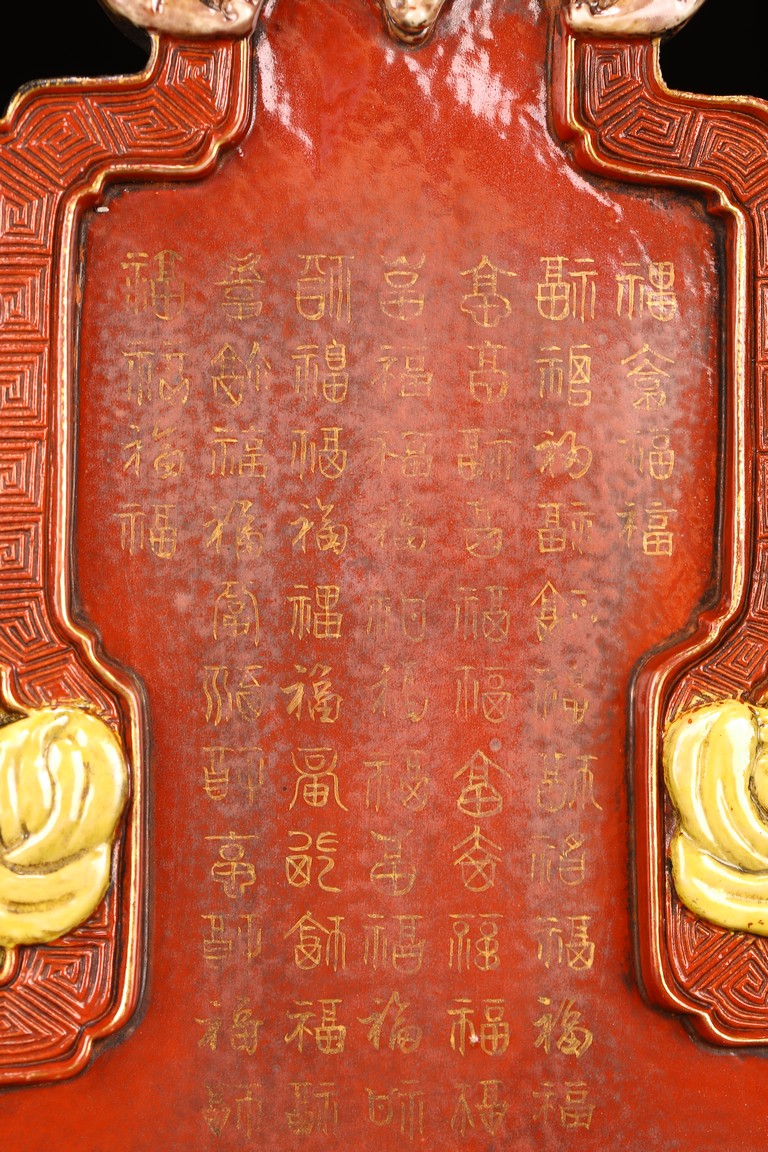 福福福福
福福福福福福福福福福福
福福福福福福福福福福福
福福福福福福福福福福福
福福福福福福福福福福福
福福福福福福福福福福福
福福福福